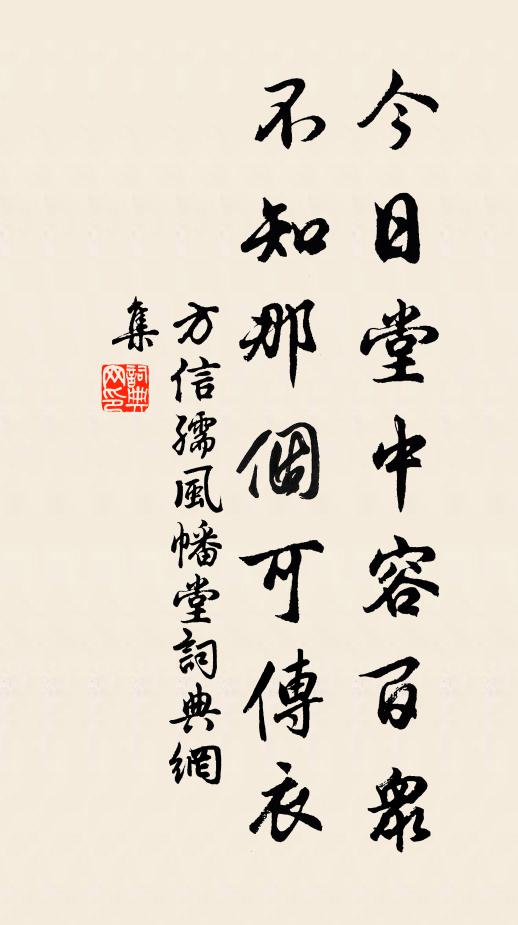 今日堂中容百眾
不知那個可傳衣
方信孺風幡堂詞典網
集
詞典网印